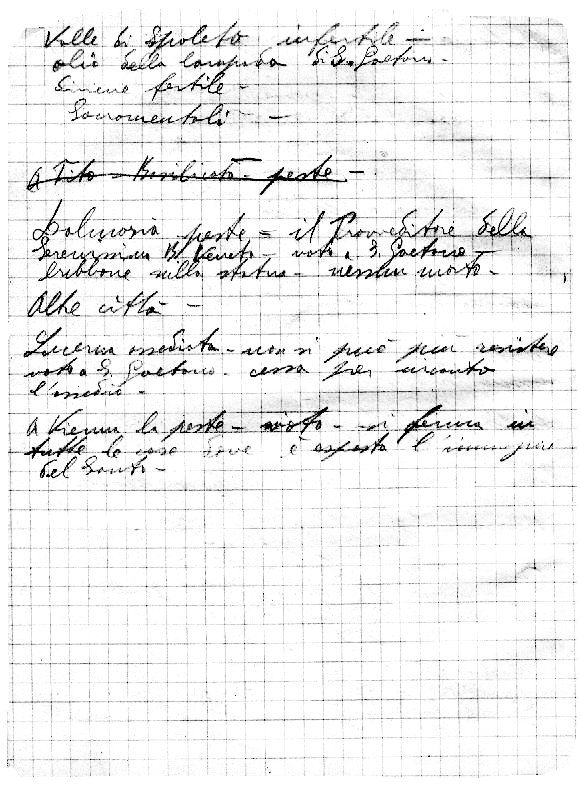 Valle di Spoleto infertile -
olio della lampada di S. Gaetano -
fertile -
Sacramentali -
A Tito = Basilicata - peste -
Dalmazia peste = il Proveditore della
Serenissima R. Veneta - voto a S. Gaetano -
sulla statua - nessun morto -
Altre città -
Lucerna assediata - non si può più resistere
voto a S. Gaetano - cessa per incanto
l'assedio -
A Vienna la peste - voto - si ferma in
tutte le case dove è esposta l'immagine
del Santo -